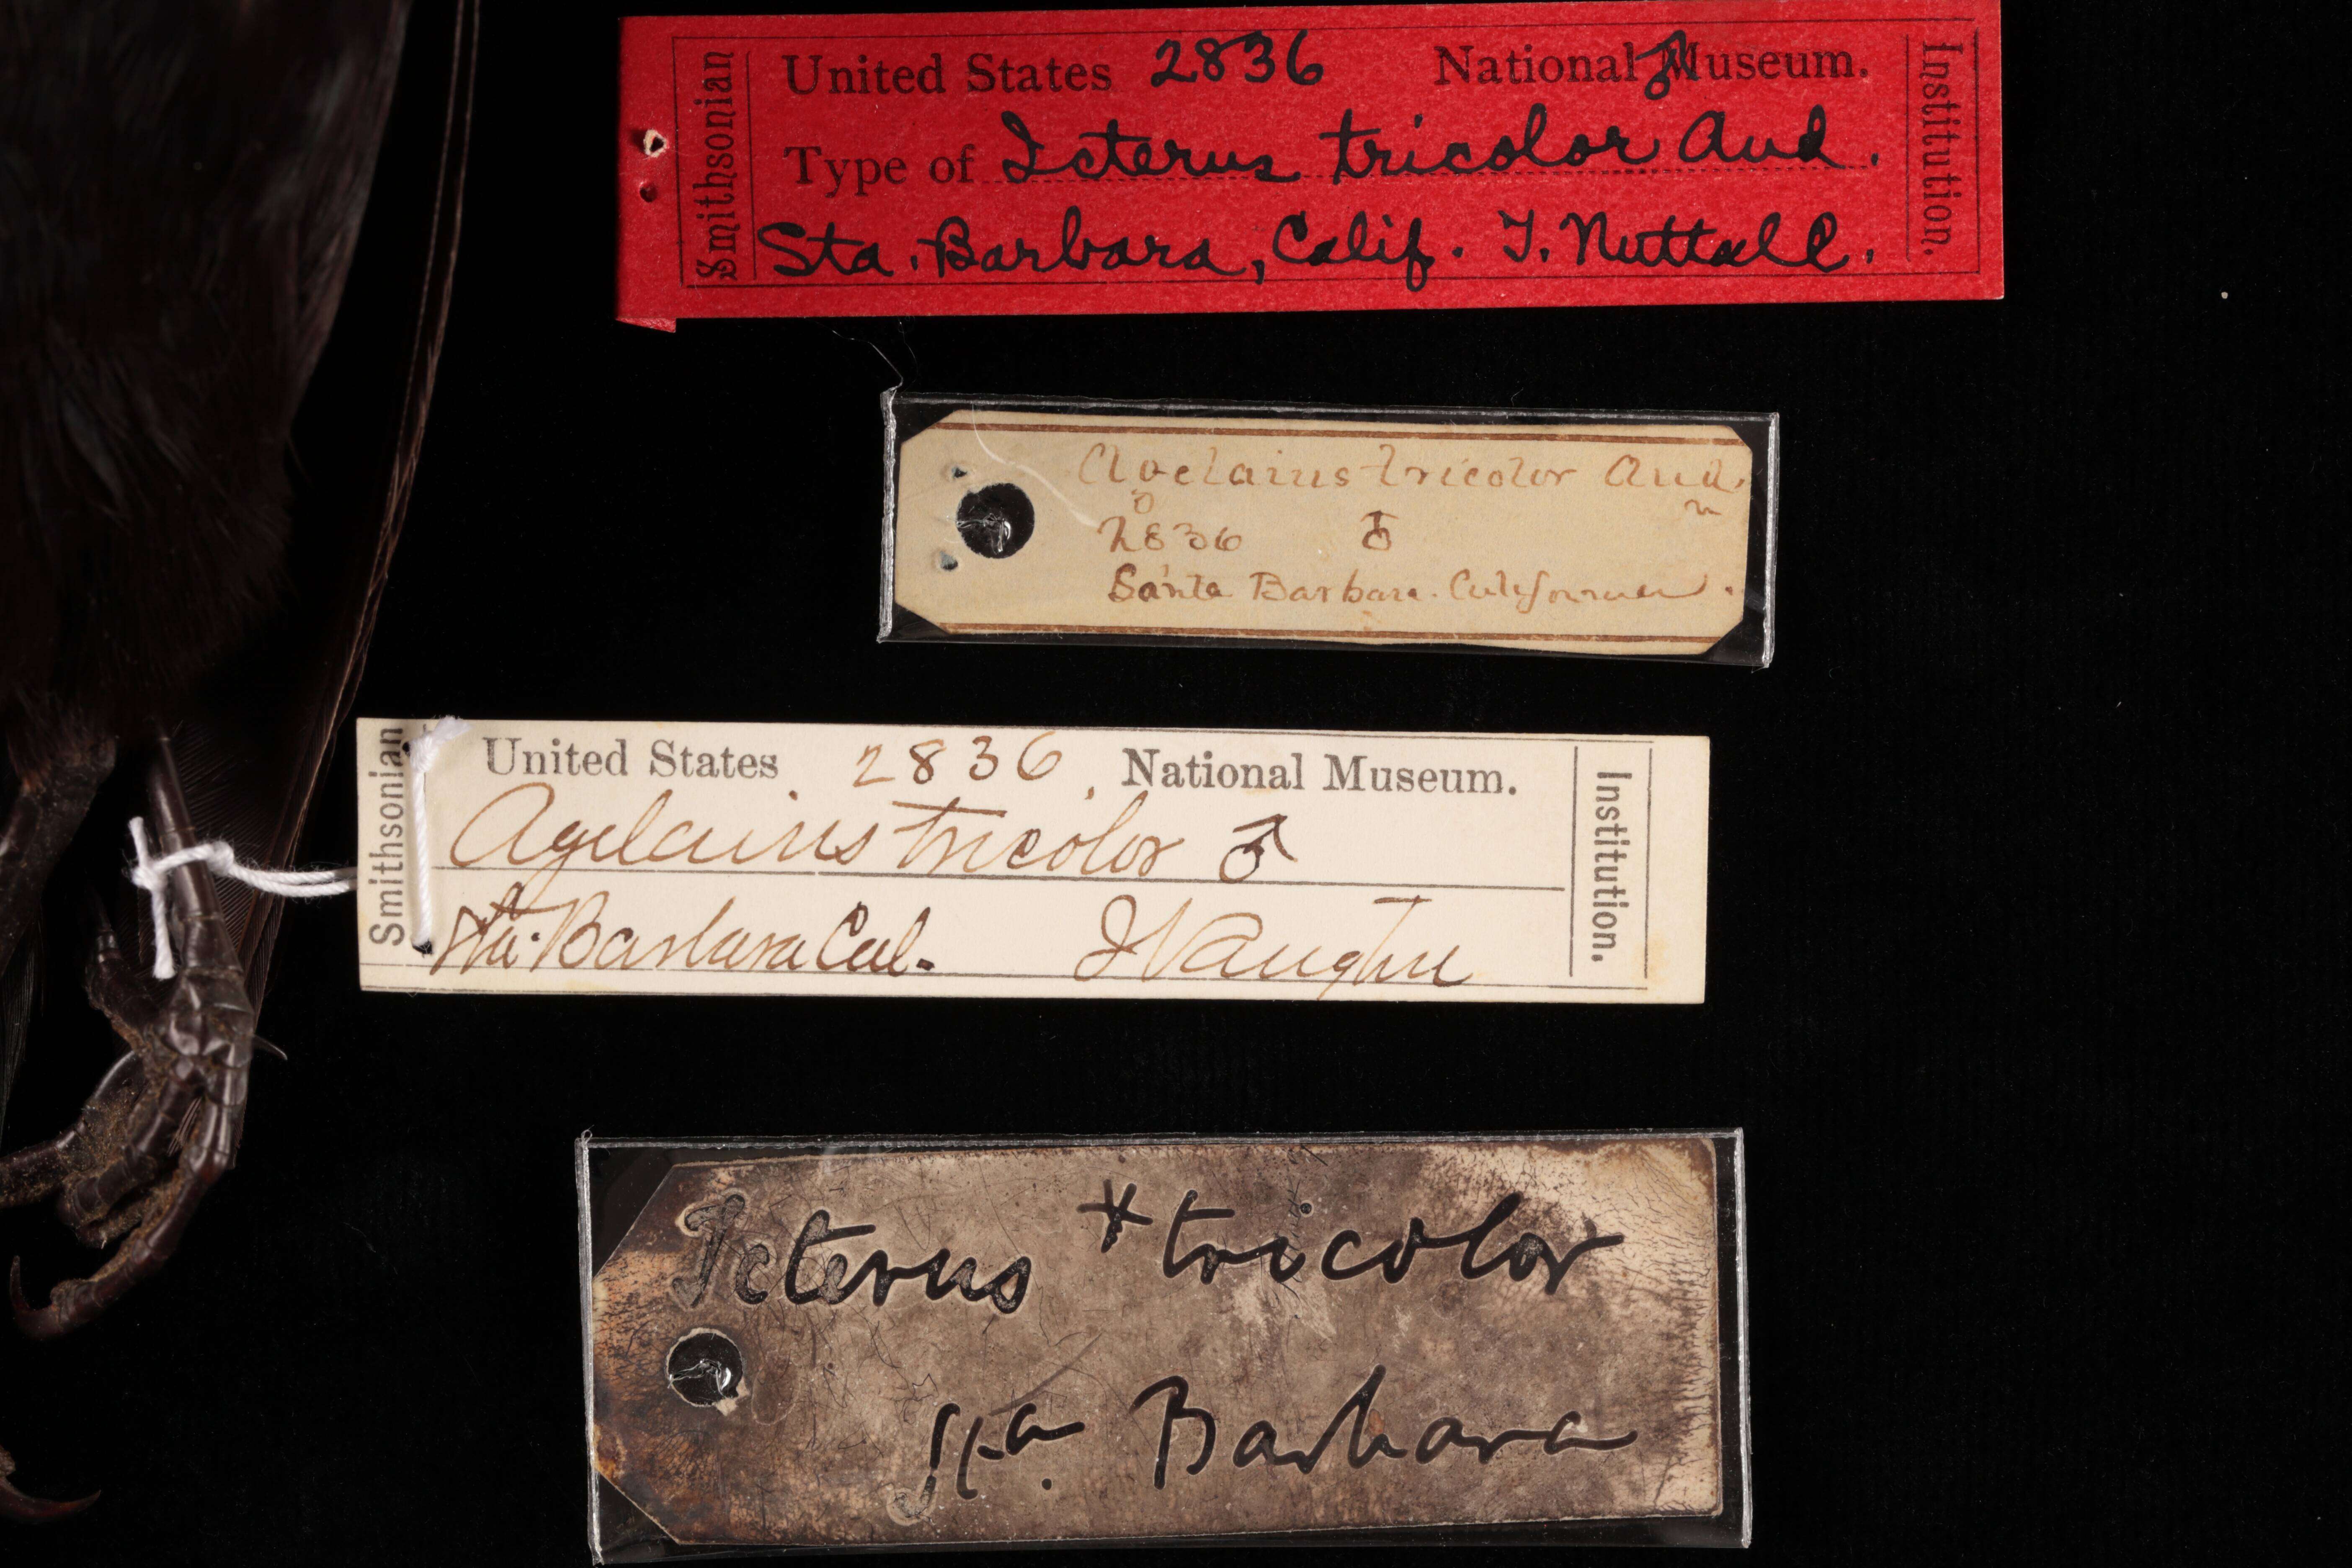 Smithsonian
United States 2836 National Museum. ♂
Type of Icterus tricolor Aud.
Sta. Barbara, Calif. T. Nuttall.
Institution.
Agelaius tricolor Aud.
2836 ♂
Santa Barbara. California.
Smithsonian
United States 2836 National Museum.
Agelaius tricolor ♂
Sta. Barbara Cal. J Vaughn
Institution.
Icterus * tricolor
Sta. Barbara